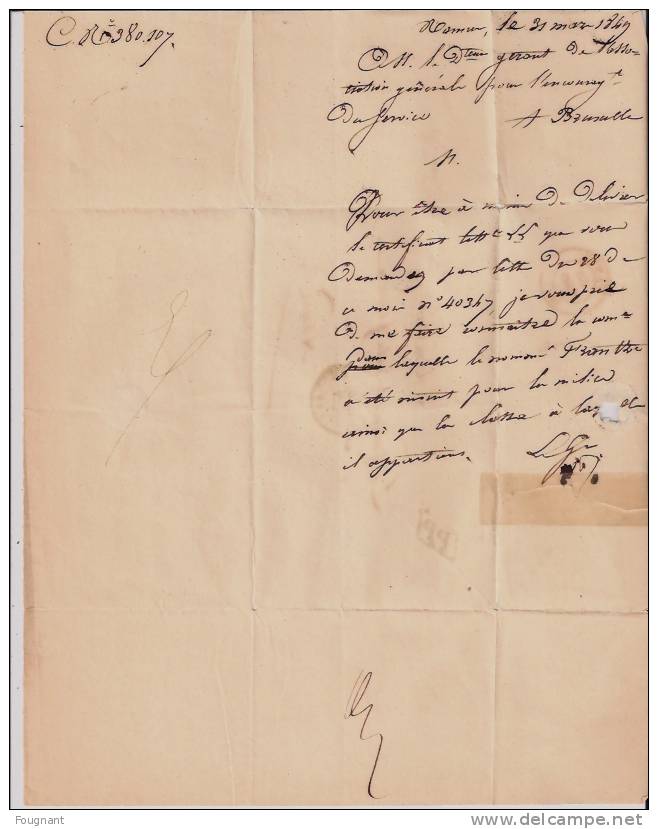 C. N° 380.107.
Namur, le 31 mars 1849
A M. le Dteur gérant de l'Asso-
ciation générale pour l'encouragt
du service A Bruxelles
M.
Pour être à même de délivrer
le certificat lettre que vous
demandez par lettre du 28 de
ce mois n° 40347 je vous prie
de me faire connaître la comne
pour dans laquelle le nommé
a été inscrit pour la milice
ainsi que la classe à laquelle
il appartient.
Le Gr
PP
Fougnant
www.delcampe.net